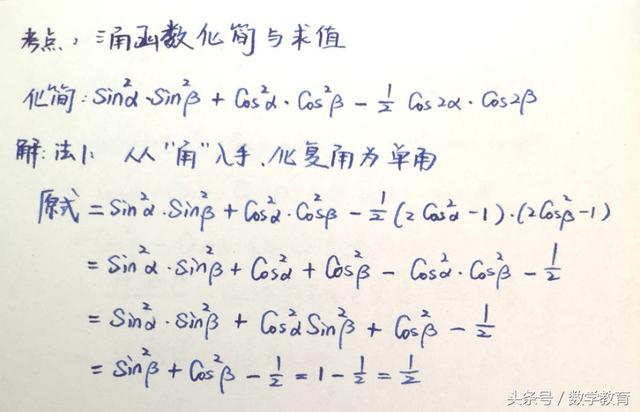 考点：三角函数化简与求值
化简：Sin²α·Sin²β + Cos²α·Cos²β − 1/2 Cos2α·Cos2β
解：法1：从"角"入手、化复角为单角
原式 = Sin²α·Sin²β + Cos²α·Cos²β − 1/2 (2Cos²α−1)·(2Cos²β−1)
= Sin²α·Sin²β + Cos²α + Cos²β − Cos²α·Cos²β − 1/2
= Sin²α·Sin²β + Cos²αSin²β + Cos²β − 1/2
= Sin²β + Cos²β − 1/2 = 1 − 1/2 = 1/2
头条号 / 数学教育